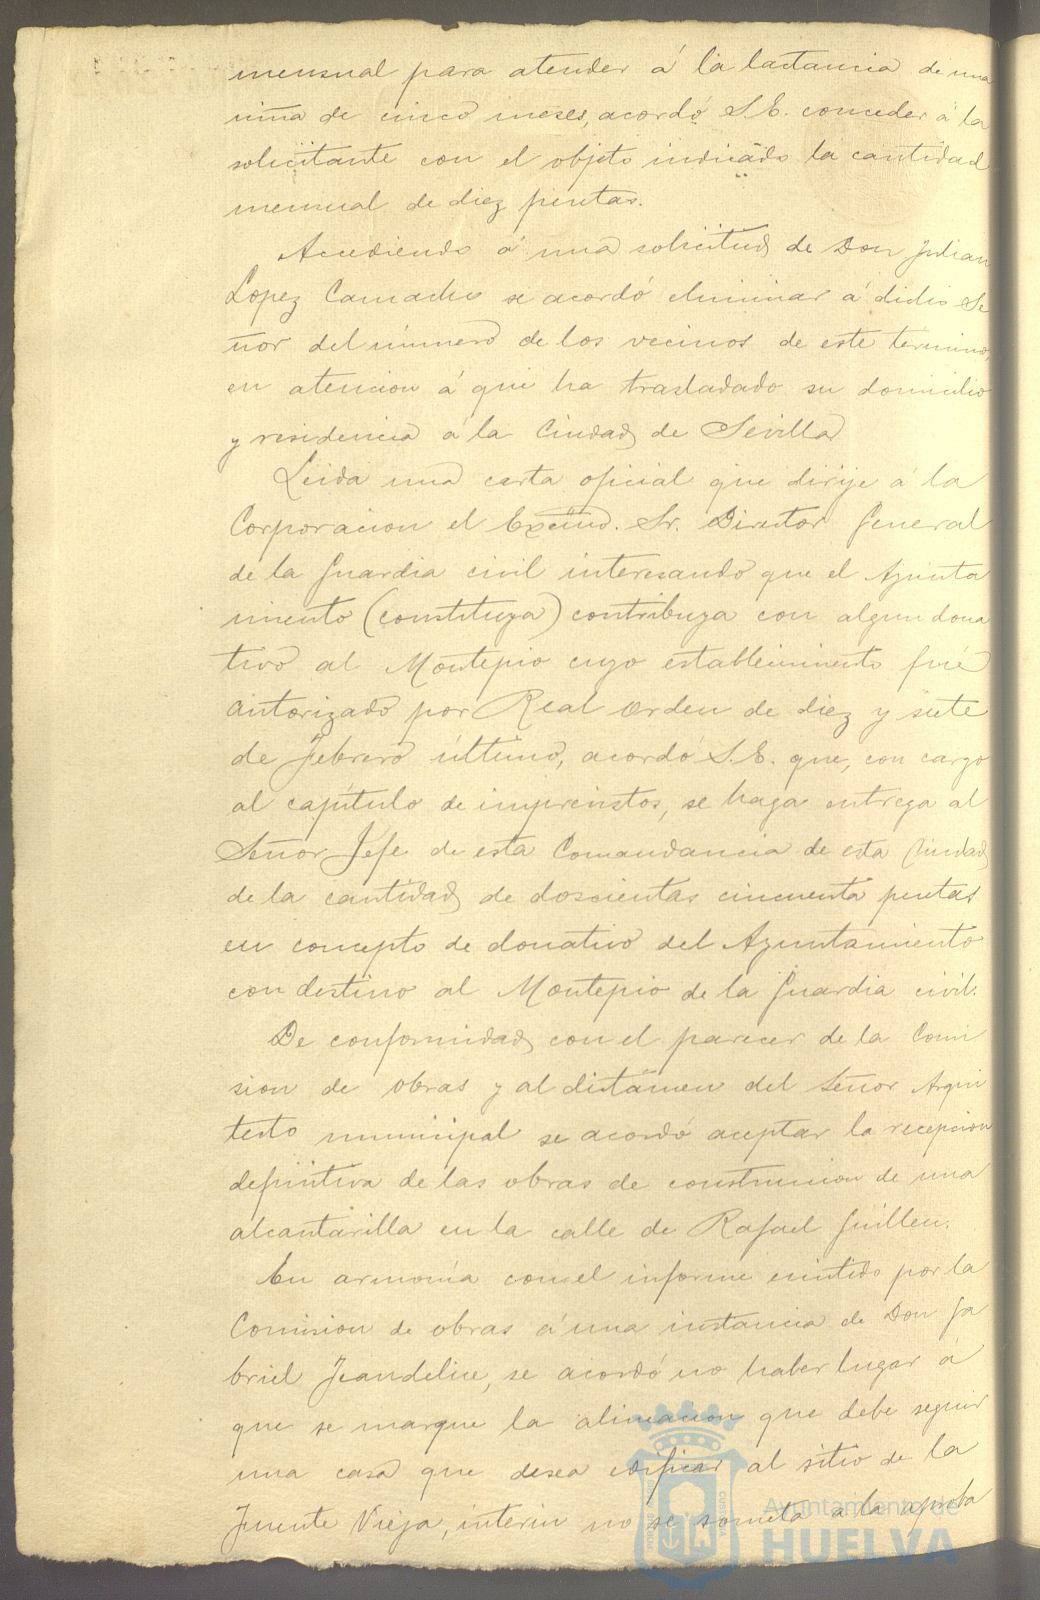 mensual para atender á la lactancia de una
niña de cinco meses, acordó S.E. conceder á la
solicitante con el objeto indicado la cantidad
mensual de diez pesetas.
Accediendo á una solicitud de Don Julian
Lopez Camacho se acordó eliminar á dicho Se
ñor del número de los vecinos de este término,
en atencion á que ha trasladado su domicilio
y residencia á la Ciudad de Sevilla
Leida una carta oficial que dirije á la
Corporacion el Excmo. Sr. Director General
de la Guardia civil interesando que el Ayunta
miento (constituya) contribuya con algun dona
tivo al Montepio cuyo establecimiento fué
autorizado por Real orden de diez y siete
de Febrero último, acordó S.E. que, con cargo
al capítulo de imprevistos, se haga entrega al
Señor Jefe de esta Comandancia de esta Ciudad
de la cantidad de doscientas cincuenta pesetas
en concepto de donativo del Ayuntamiento
con destino al Montepio de la Guardia civil.
De conformidad con el parecer de la Comi
sion de obras y al dictámen del Señor Arqui
tecto municipal se acordó aceptar la recepcion
definitiva de las obras de construccion de una
alcantarilla en la calle de Rafael Guillen.
En armonía con el informe emitido por la
Comision de obras á una instancia de Don Ga
briel Jeandelice, se acordó no haber lugar á
que se marque la alineacion que debe seguir
una casa que desea edificar al sitio de la
Fuente Vieja, interin no se someta á la aproba
Ayuntamiento de
HUELVA